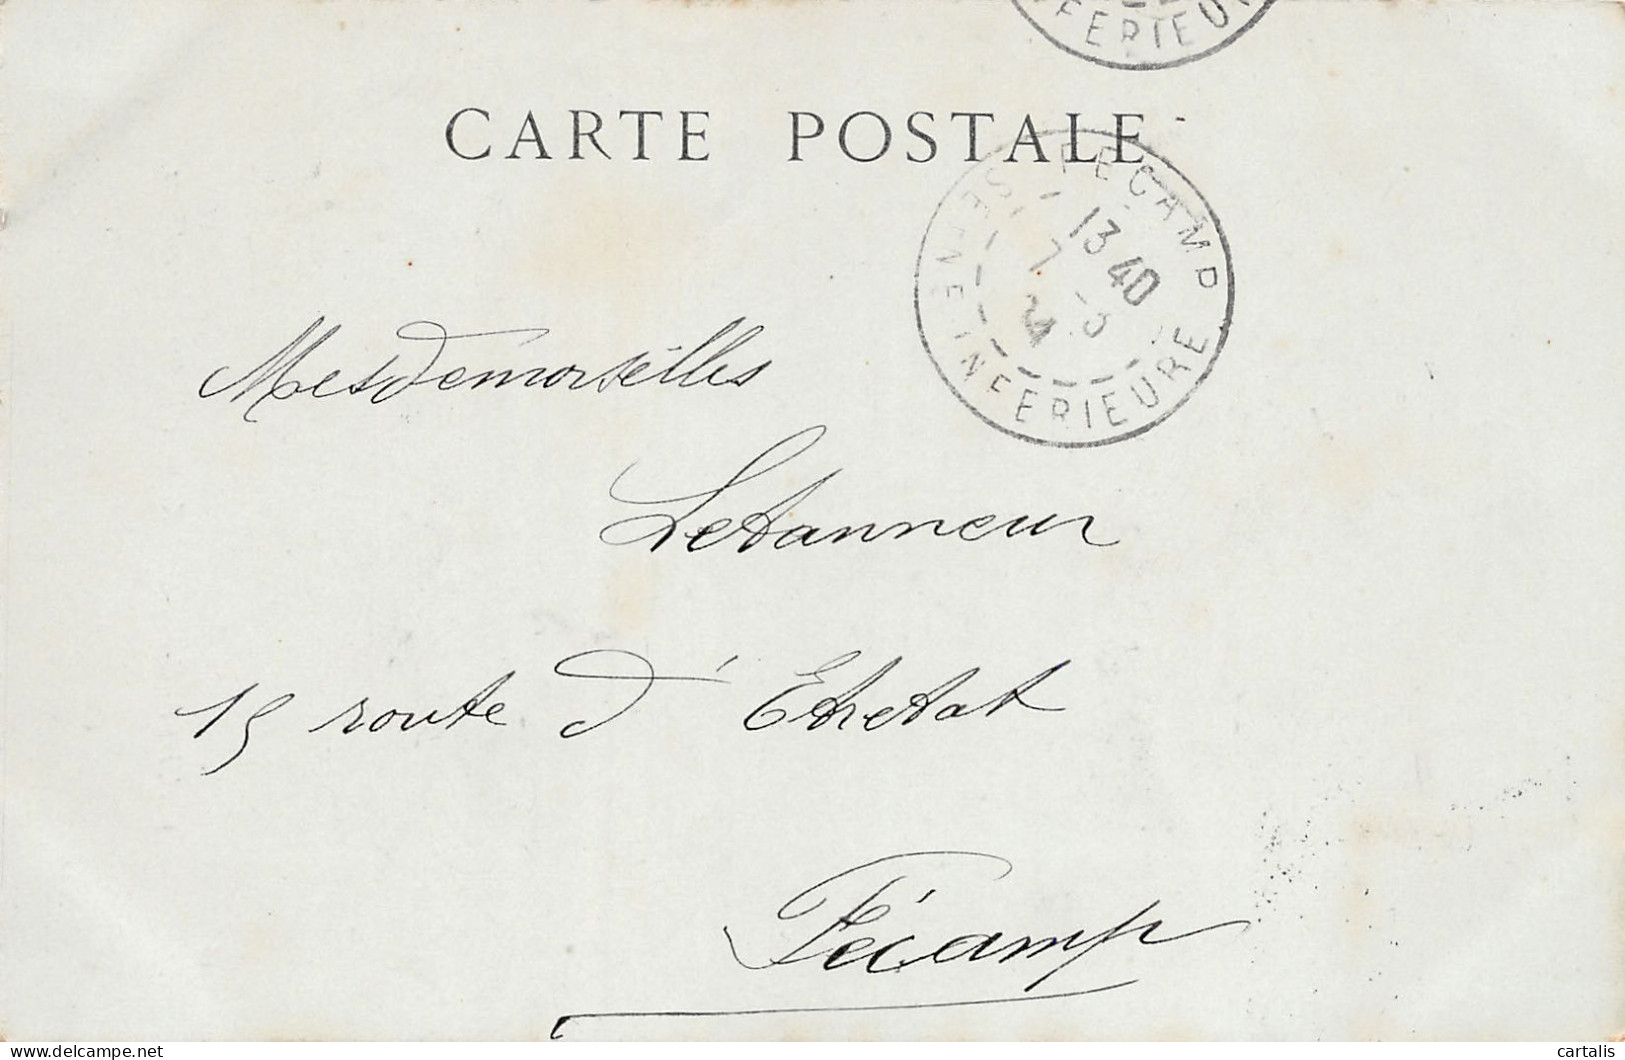 FERIEUR
CARTE POSTALE
FECAMP
13 40
7 -3
24
SEINE INFERIEURE
Mesdemoiselles
Letanneur
15 route d'Etretat
Fécamp
www.delcampe.net
cartalis